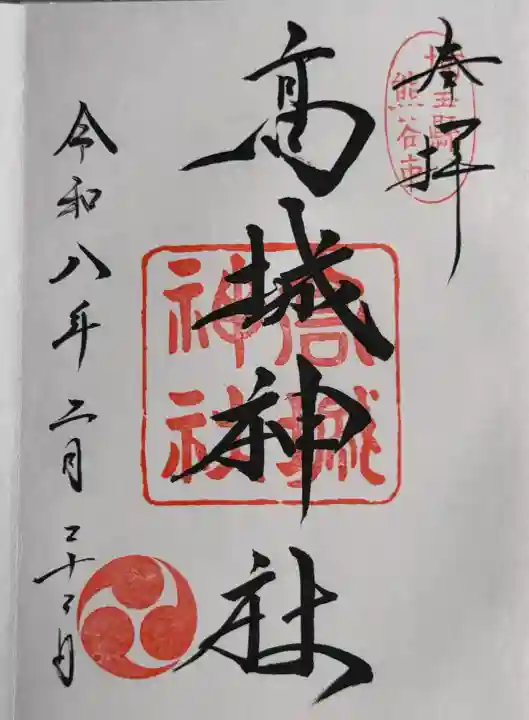 奉拝
埼玉縣
熊谷市
髙城神社
高城
神社
令和八年二月二十二日